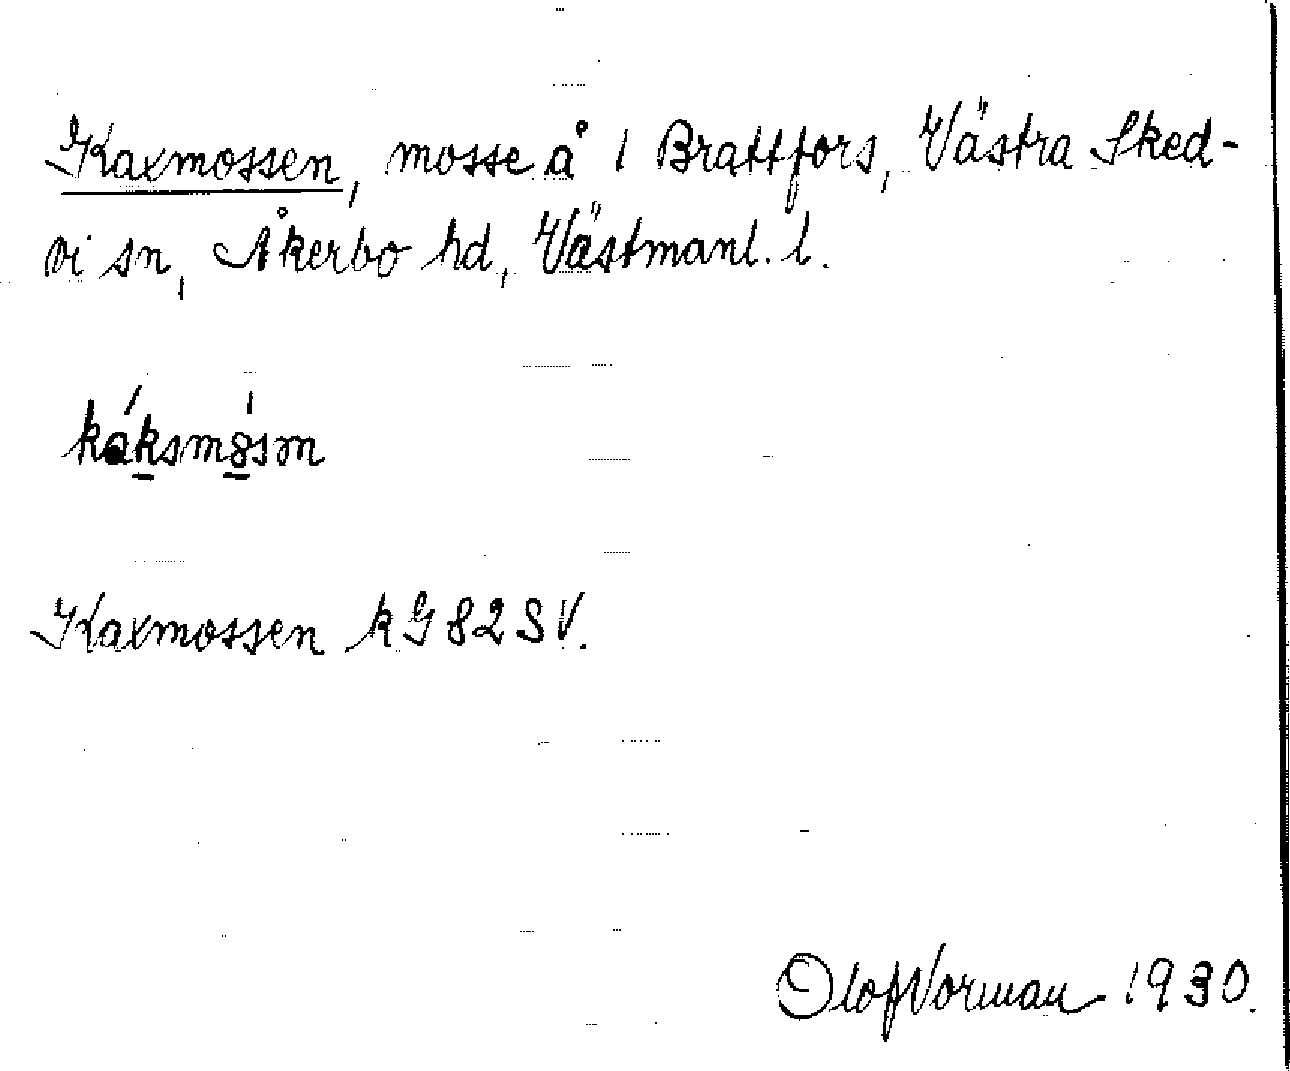 Kaxmossen, mosse å 1 Brattfors, Västra Sked-
vi sn, Åkerbo hd, Västmanl. l.
káksmȯsm
Kaxmossen kG82SV.
Olof Vorman 1930.